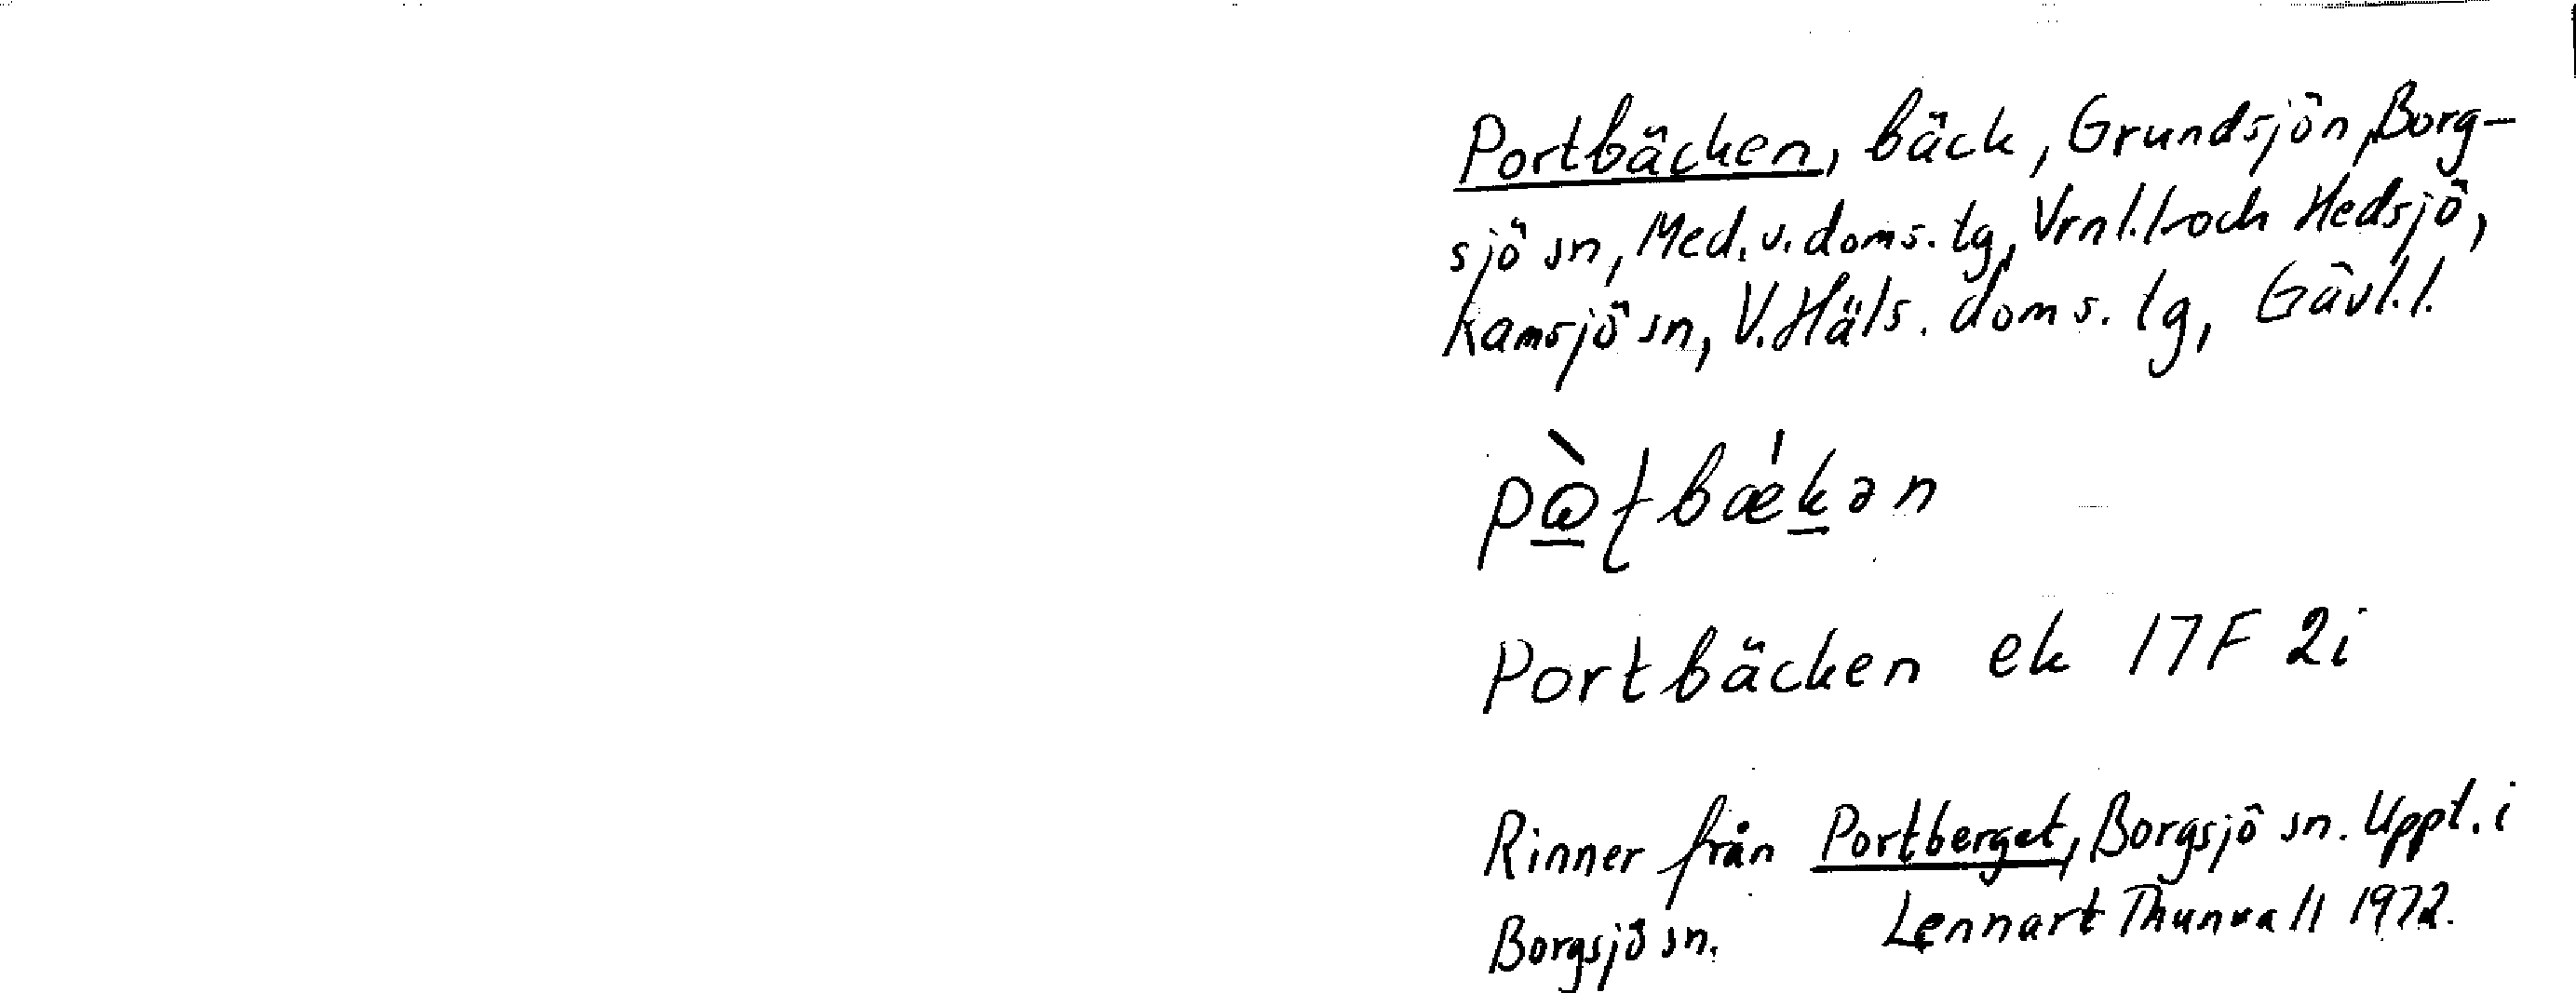 Portbäcken, bäck, Grundsjön, Borg-
sjö sn, Med. v. doms. lg, Vrnl. l. och Hedsjö,
Ramsjö sn, V. Häls. doms. lg, Gävl. l.
pὼʈbækən
Portbäcken ek 17F 2i
Rinner från Portberget, Borgsjö sn. Uppt. i
Borgsjö sn. Lennart Thunvall 1972.